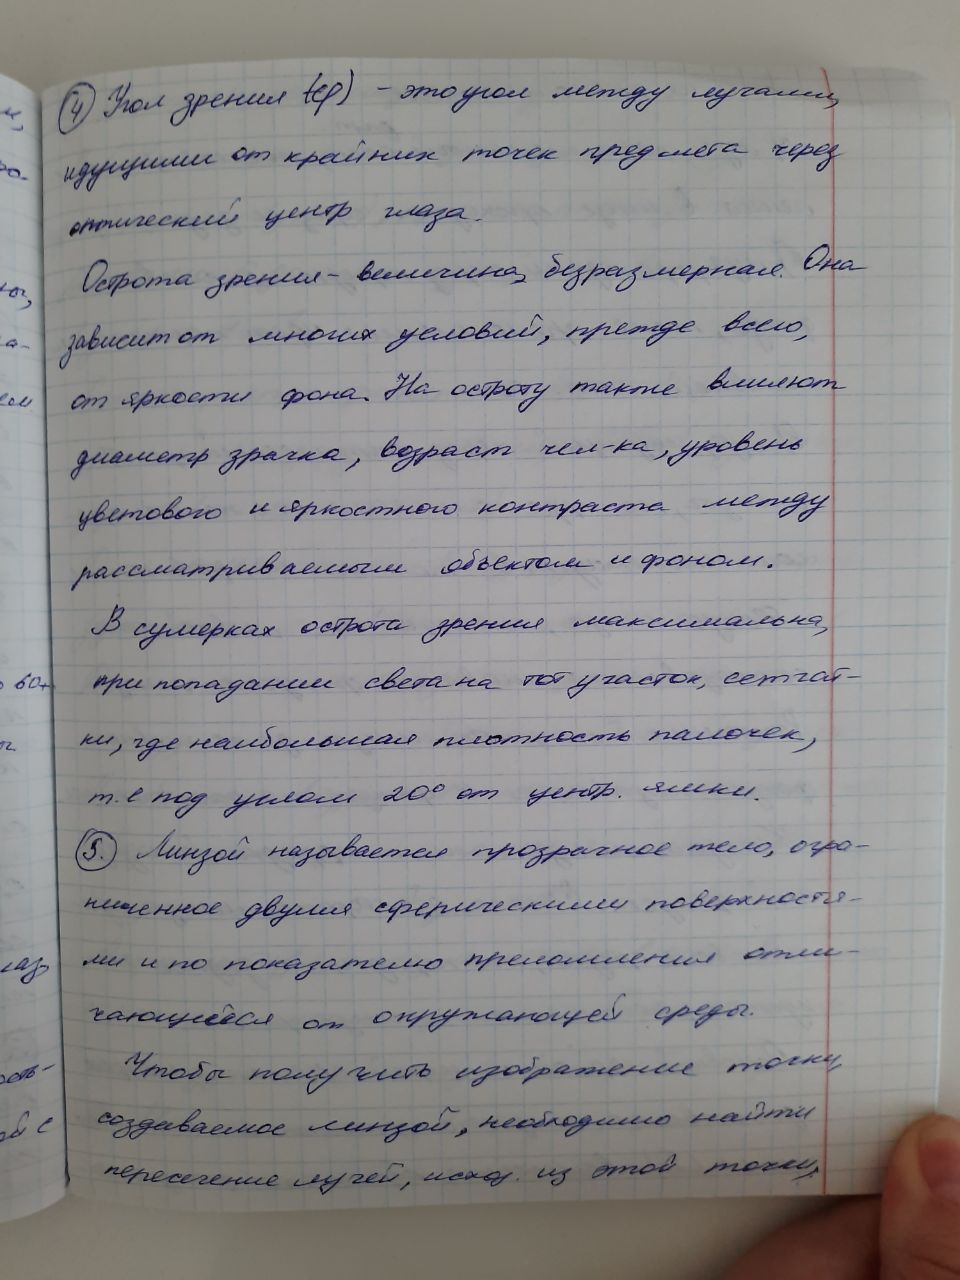 ④ Угол зрения (φ) - это угол между лучами,
идущими от крайних точек предмета через
оптический центр глаза.
Острота зрения - величина, безразмерная. Она
зависит от многих условий, прежде всего,
от яркости фона. На остроту также влияют
диаметр зрачка, возраст чел-ка, уровень
цветового и яркостного контраста между
рассматриваемым объектом и фоном.
В сумерках острота зрения максимальна,
при попадании света на тот участок, сетчат-
ки, где наибольшая плотность палочек,
т.е под углом 20° от центр. ямки.
⑤. Линзой называется прозрачное тело, огра-
ниченное двумя сферическими поверхностя-
ми и по показателю преломления отли-
чающийся от окружающей среды.
Чтобы получить изображение точки,
создаваемое линзой, необходимо найти
пересечение лучей, исход. из этой точки,